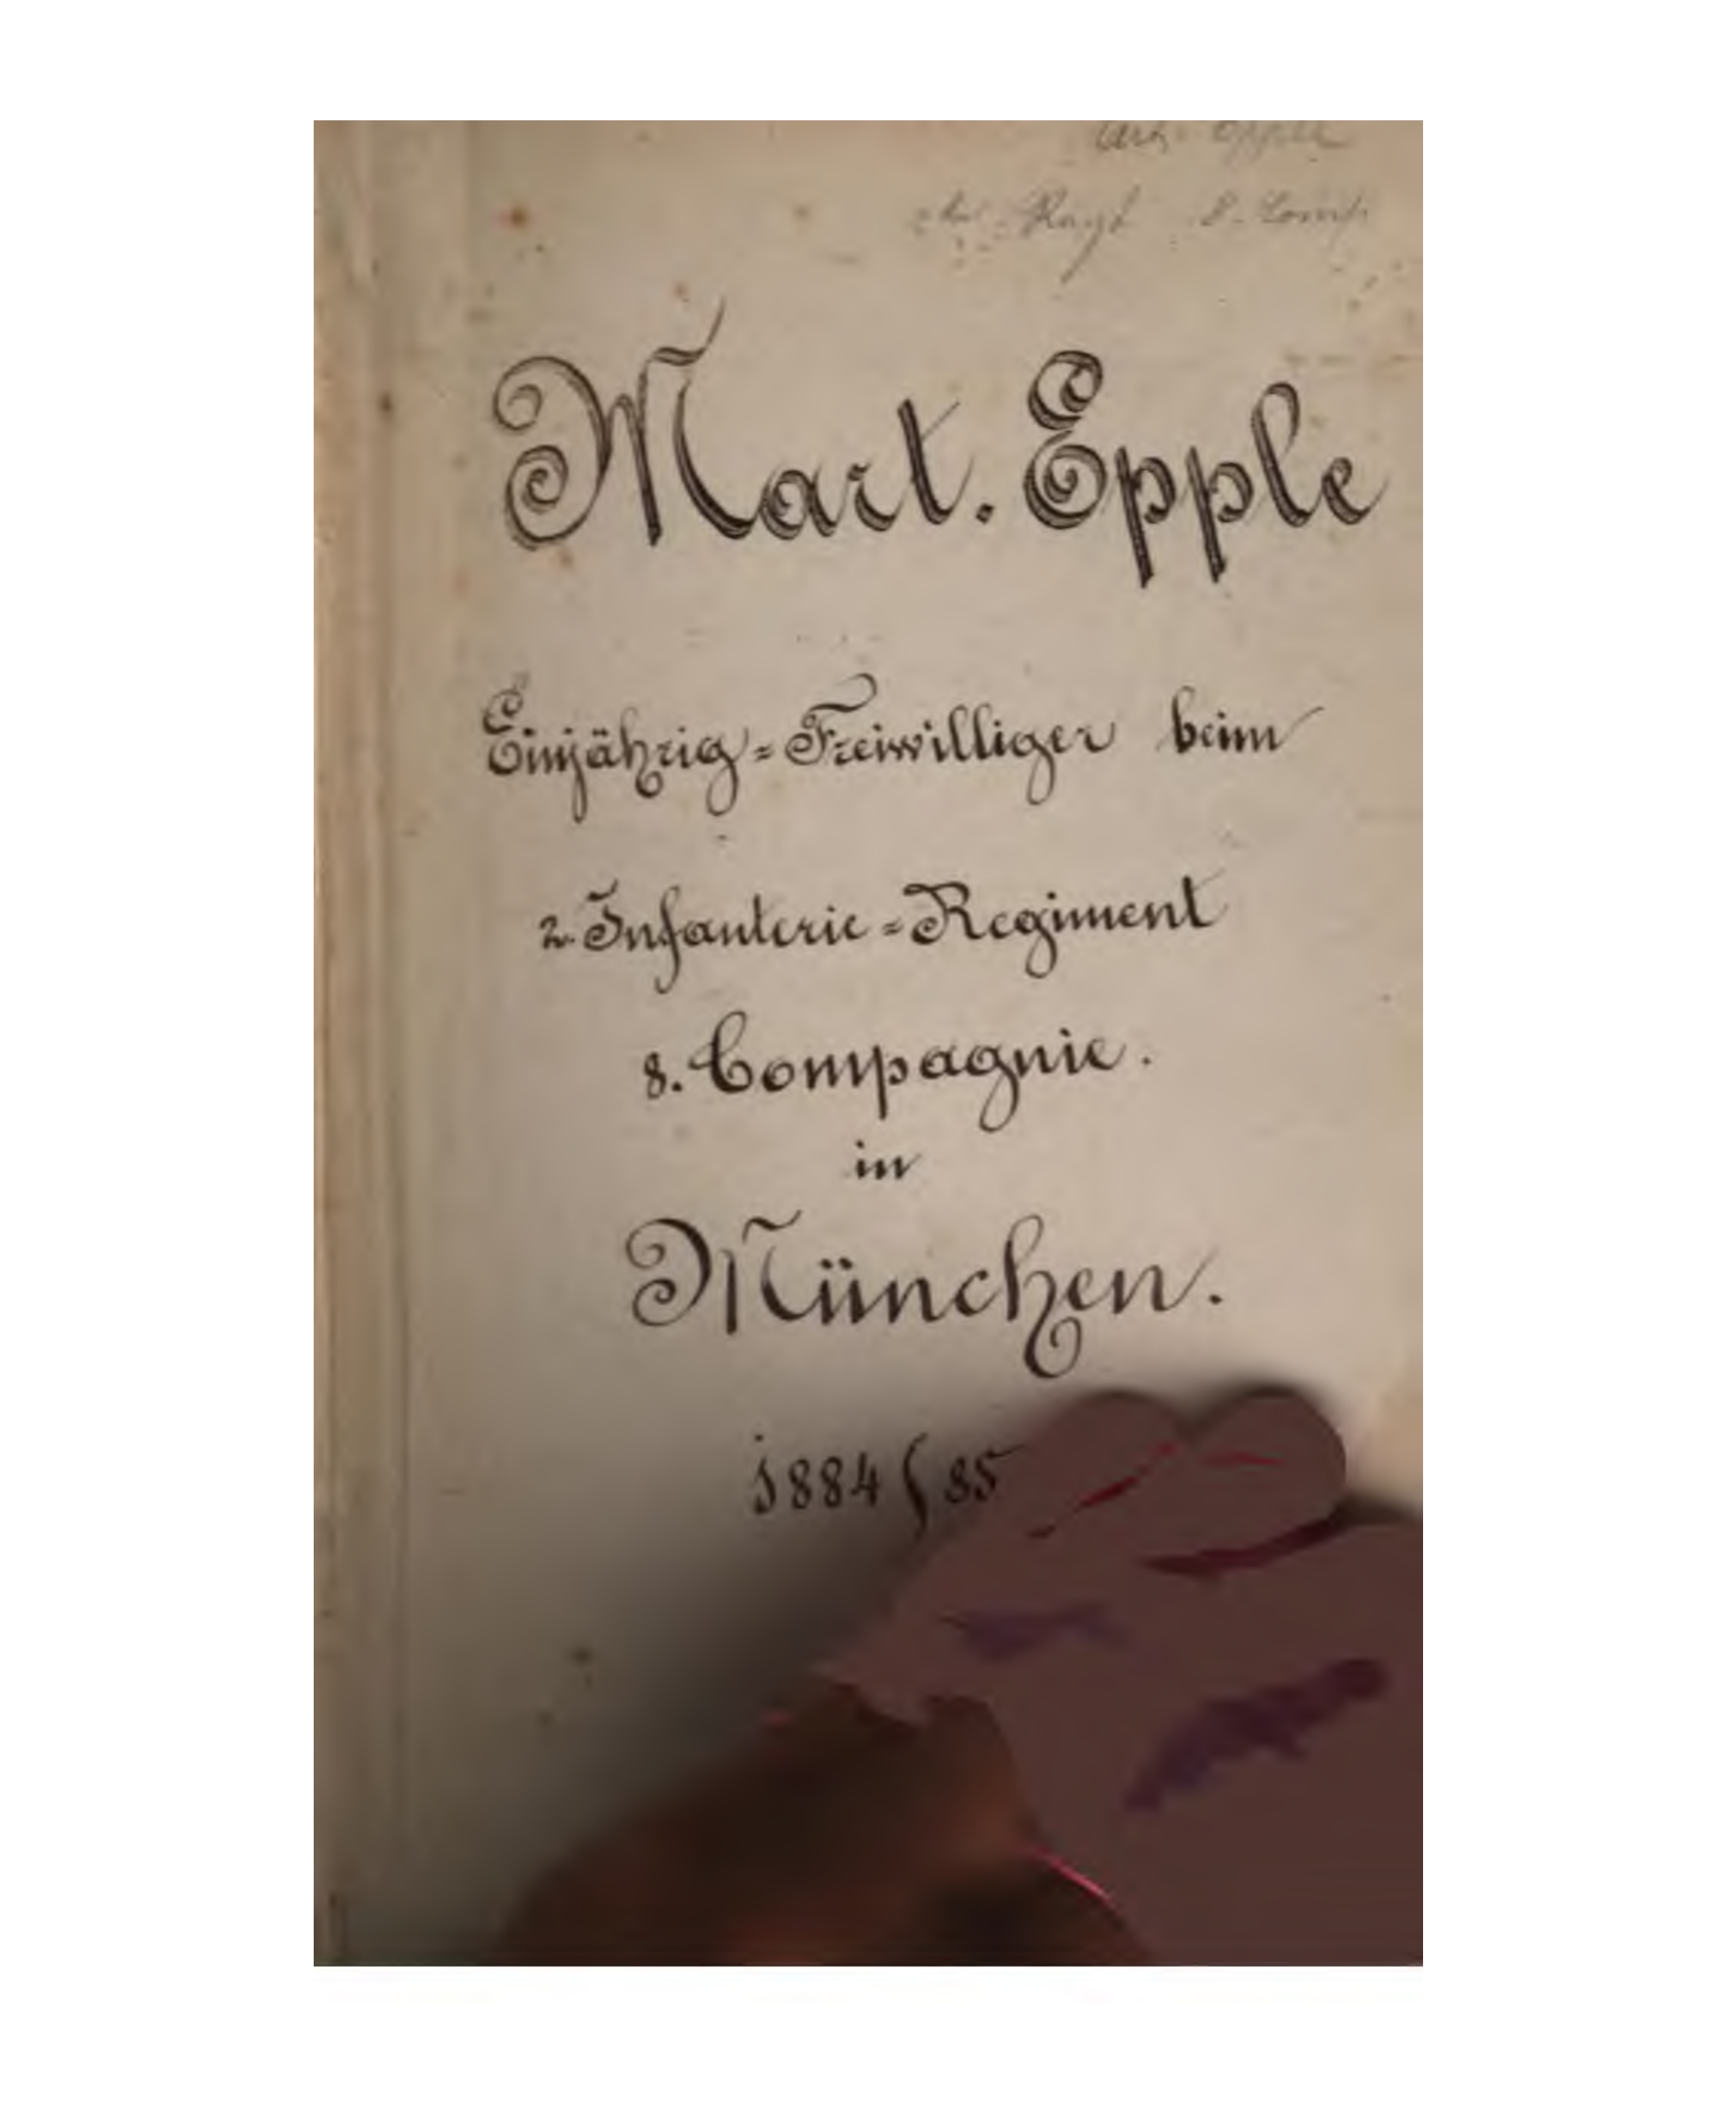 Epple
Regt 8. Comp
Mart. Epple
Einjährig=Freiwilliger beim
2. Infanterie=Regiment
8. Compagnie.
in
München.
1884/85